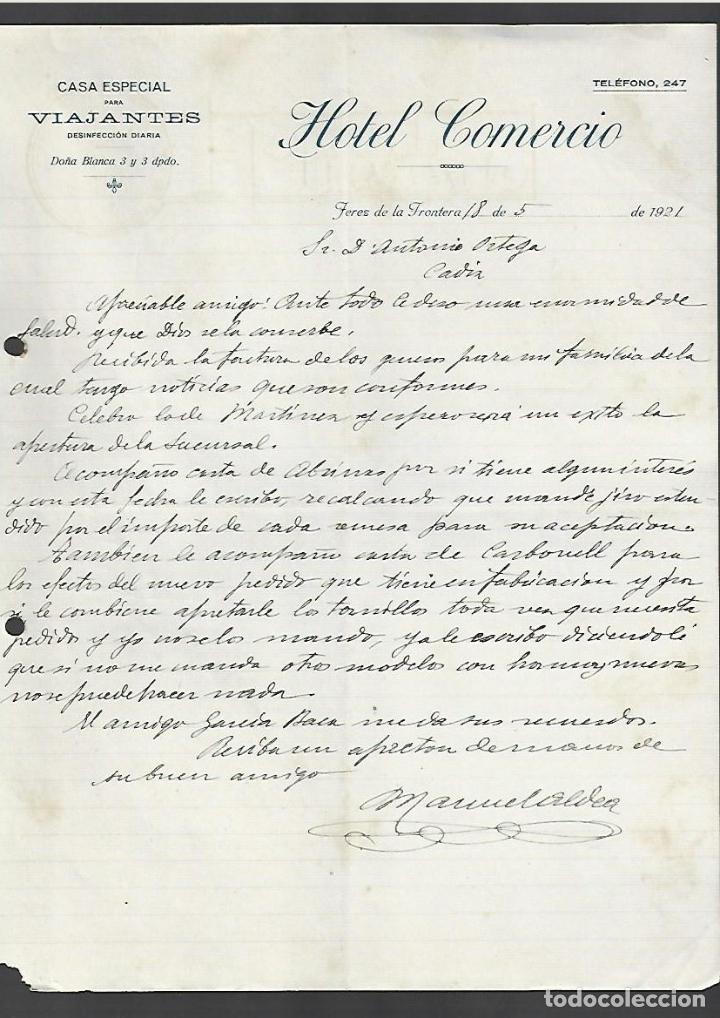 CASA ESPECIAL
PARA
VIAJANTES
DESINFECCIÓN DIARIA
Doña Blanca 3 y 3 dpdo.
TELÉFONO, 247
Hotel Comercio
Jerez de la Frontera 18 de 5 de 1921
Sr. D. Antonio Ortega
Cadiz
Apreciable amigo: Ante todo le deseo una enormidad de
salud. y que Dios se la conserbe.
Recibida la factura de los para mi familia de la
cual tengo noticias que son conformes.
Celebro lo de Martinez y espero será un exito la
apertura de la Sucursal.
Acompaño carta de por si tiene algun interés
y con esta fecha le escribo, recalcando que mande jiro exten-
dido por el importe de cada remesa para su aceptacion.
tambien le acompaño carta de Carbonell para
los efectos del nuevo pedido que tiene en fabricacion y por
si le combiene apretarle los tornillos toda vez que necesita
pedido y yo no se los mando, ya le escribo diciendole
que si no me manda otros modelos con hormas nuevas
no se puede hacer nada.
El amigo García Baca me da sus recuerdos.
Reciba un apreton de manos de
su buen amigo
Manuel Aldea
todocoleccion